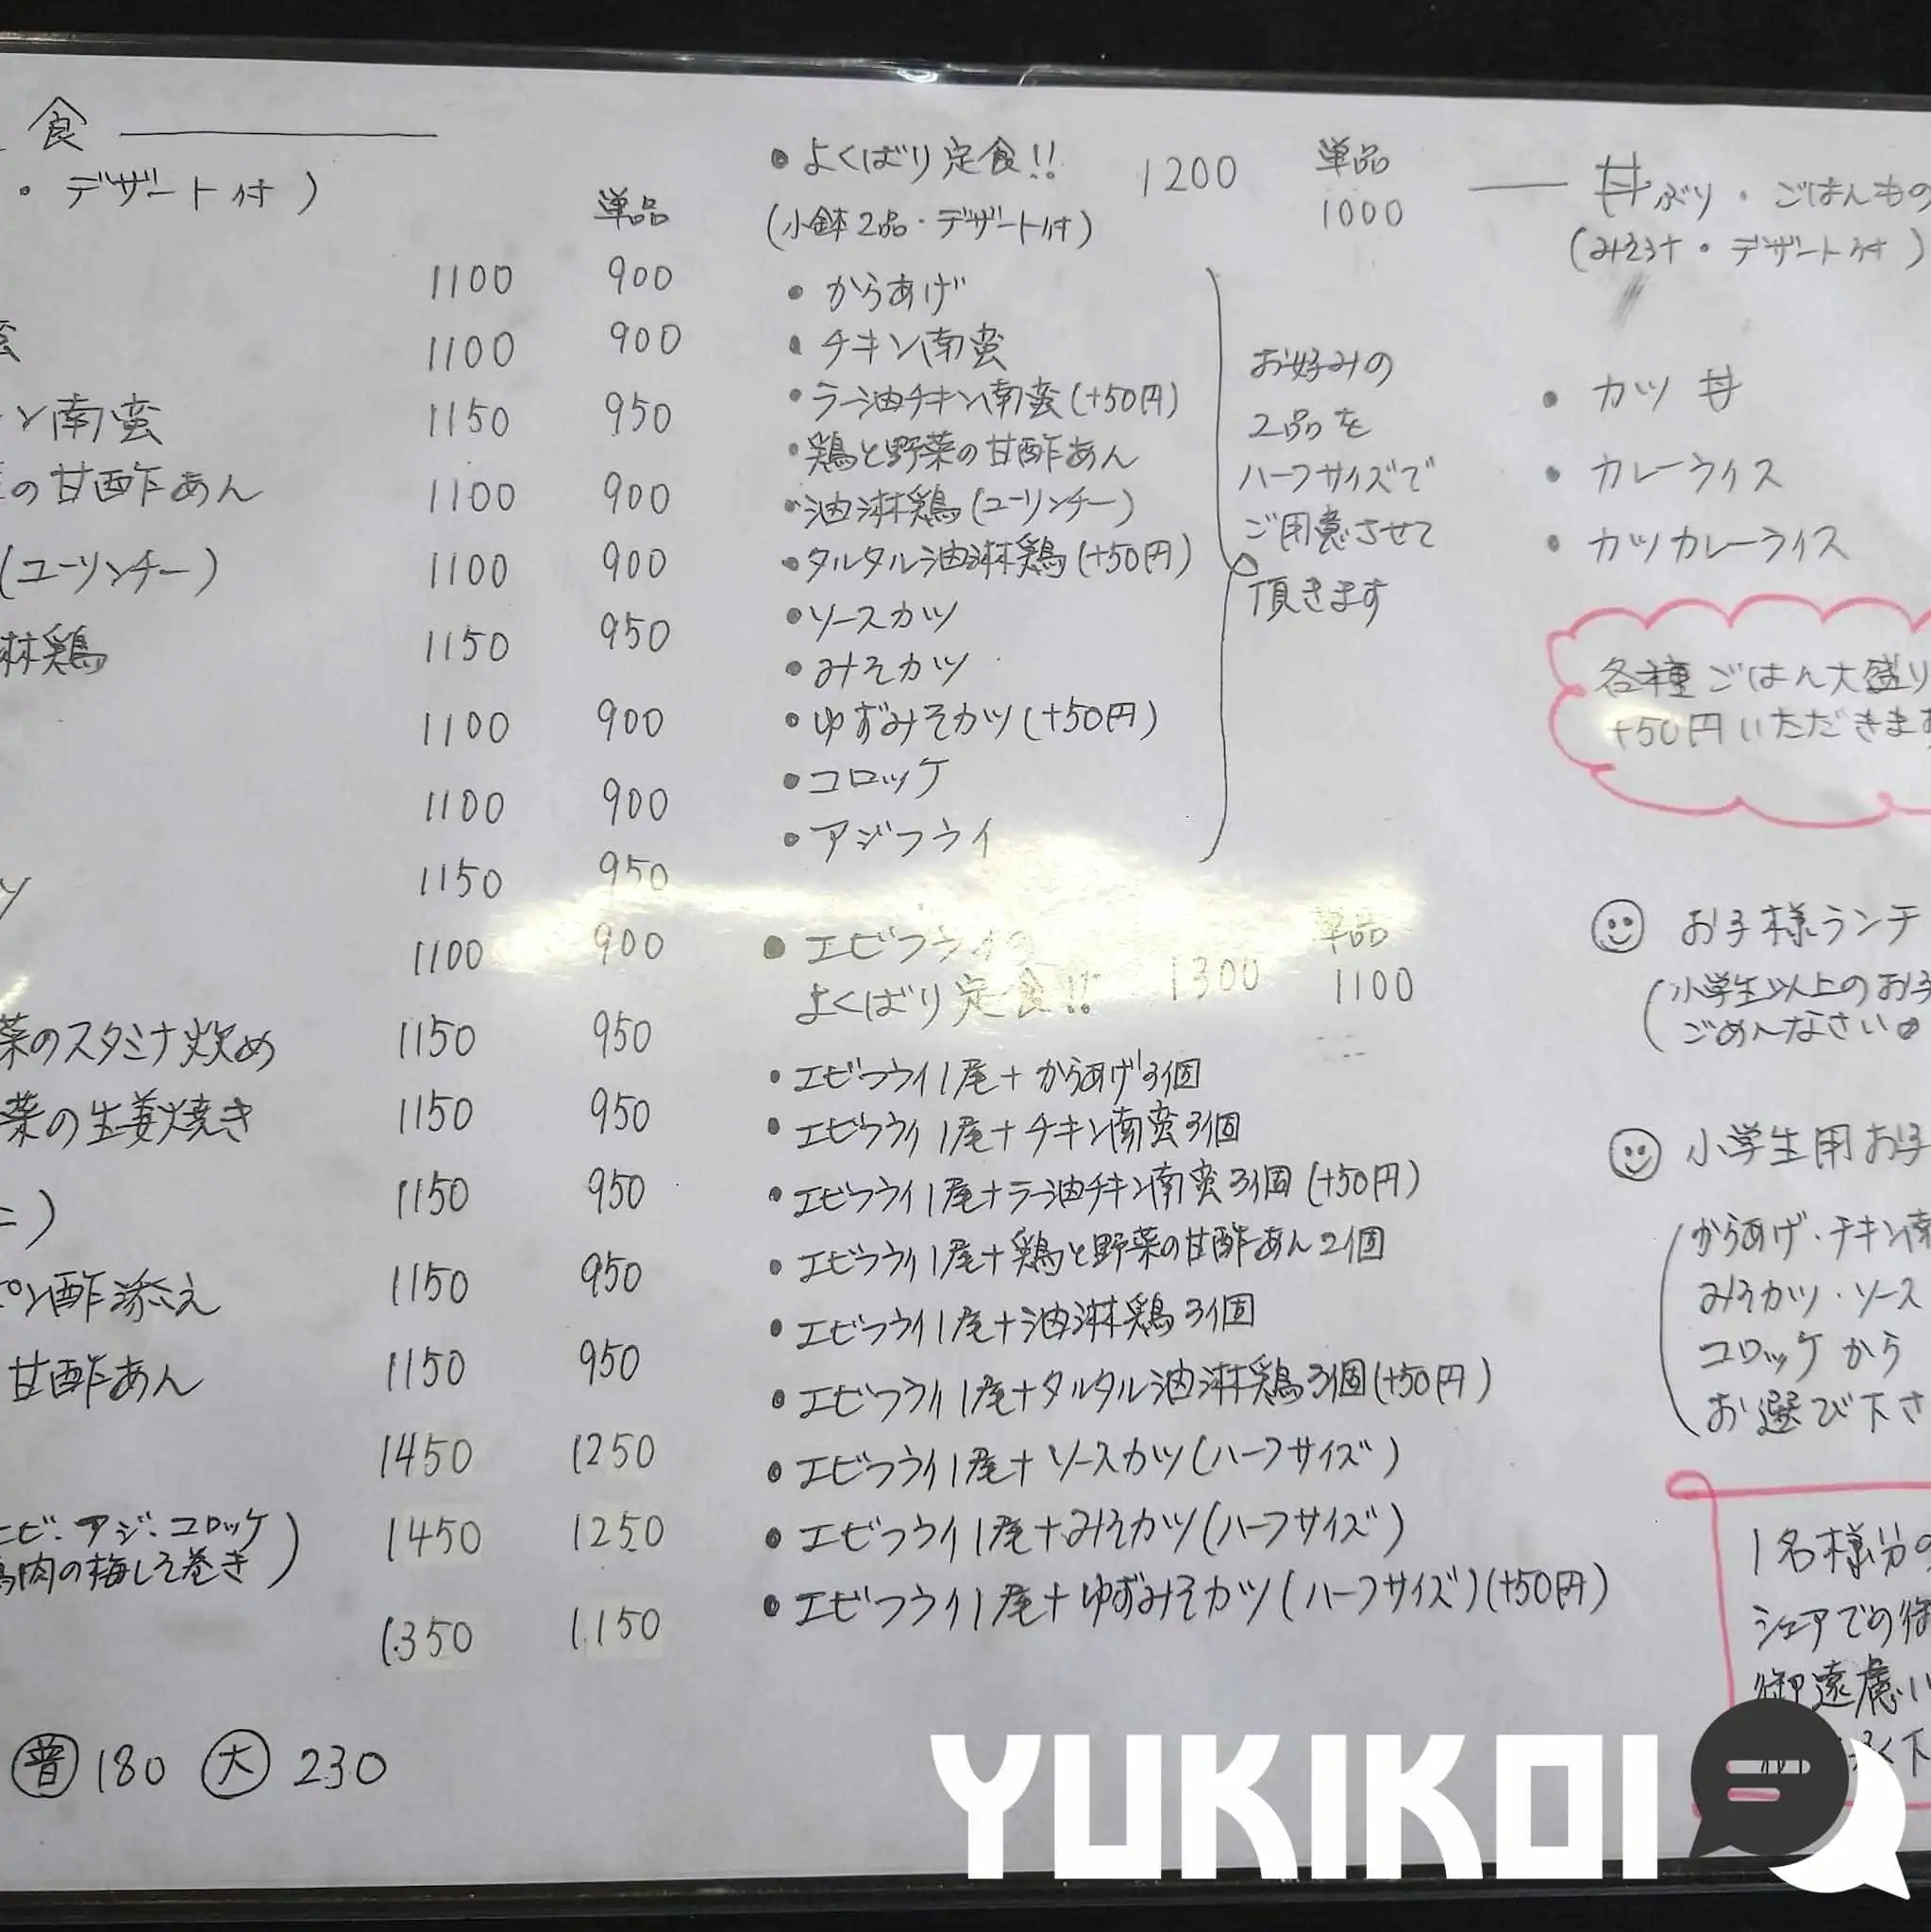 食
・デザート付)
単品
1100 900
蛮 1100 900
ン南蛮 1150 950
の甘酢あん 1100 900
(ユーリンチー) 1100 900
淋鶏 1150 950
1100 900
1100 900
ツ 1150 950
1100 900
菜のスタミナ炒め 1150 950
菜の生姜焼き 1150 950
ニ) 1150 950
ポン酢添え 1150 950
甘酢あん 1150 950
1450 1250
エビ・アジ・コロッケ 1450 1250
肉の梅しそ巻き)
1350 1150
普 180 大 230
• よくばり定食!! 1200 単品
(小鉢2品・デザート付) 1000
• からあげ
• チキン南蛮
• ラー油チキン南蛮(+50円)
• 鶏と野菜の甘酢あん
• 油淋鶏(ユーリンチー)
• タルタル油淋鶏(+50円)
• ソースカツ
• みそカツ
• ゆずみそカツ(+50円)
• コロッケ
• アジフライ
お好みの
2品を
ハーフサイズで
ご用意させて
頂きます
• エビフライの 単品
よくばり定食!! 1300 1100
• エビフライ1尾+からあげ3個
• エビフライ1尾+チキン南蛮3個
• エビフライ1尾+ラー油チキン南蛮3個(+50円)
• エビフライ1尾+鶏と野菜の甘酢あん2個
• エビフライ1尾+油淋鶏3個
• エビフライ1尾+タルタル油淋鶏3個(+50円)
• エビフライ1尾+ソースカツ(ハーフサイズ)
• エビフライ1尾+みそカツ(ハーフサイズ)
• エビフライ1尾+ゆずみそカツ(ハーフサイズ)(+50円)
丼ぶり・ごはんもの
(みそ汁・デザート付)
• カツ丼
• カレーライス
• カツカレーライス
各種ごはん大盛り
+50円いただきます
お子様ランチ
(小学生以上のお子
ごめんなさい
小学生用お子
(からあげ・チキン南
みそカツ・ソース
コロッケから
お選び下さ
1名様分の
シェアでの御
御遠慮い
下
YUKIKOI